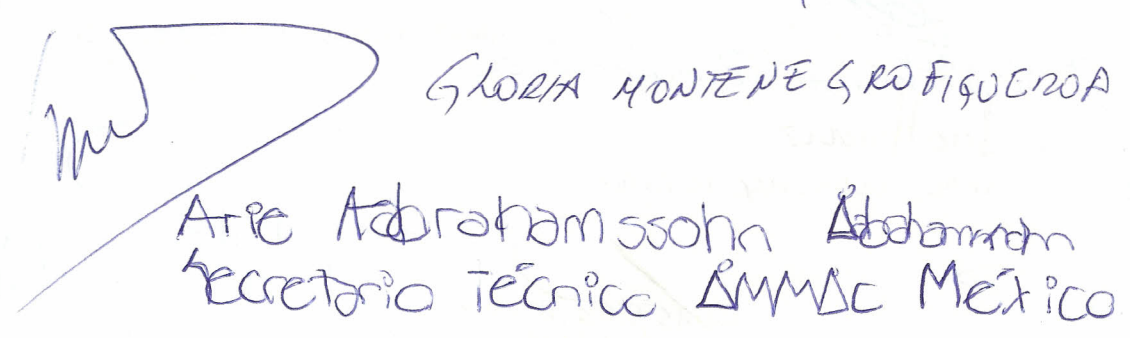 GLORIA MONTENEGRO FIGUEROA
Arie Aabrahamssohn
Secretario Técnico ÅMMÅC México